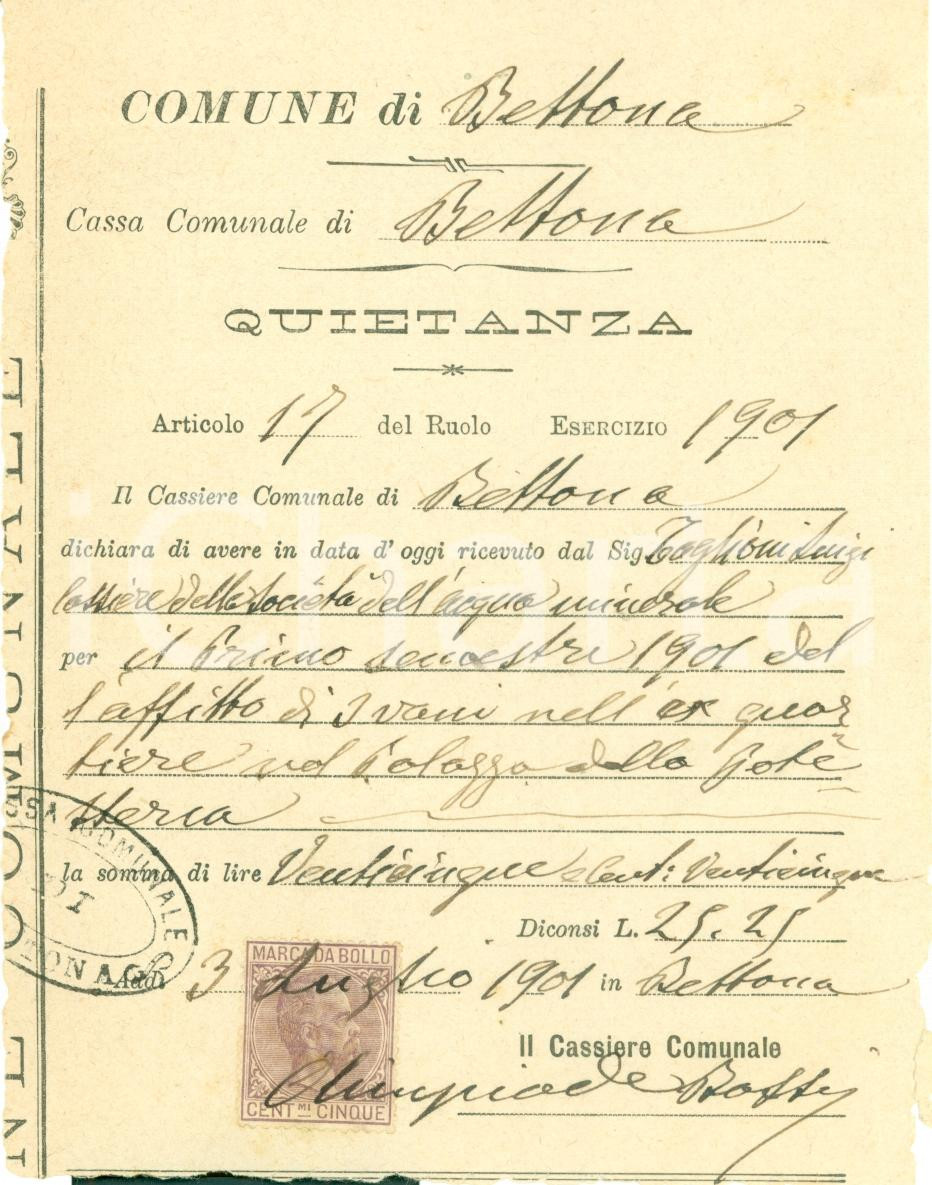 COMUNE di Bettona
Cassa Comunale di Bettona
QUIETANZA
Articolo 17 del Ruolo ESERCIZIO 1901
Il Cassiere Comunale di Bettona
dichiara di avere in data d'oggi ricevuto dal Sig. Taglioni Luigi
Cassiere della Società dell'acqua minerale
per il primo semestre 1901 del
l'affitto di 3 vani nell'ex quar
tiere nel Palazzo della Pote
steria
la somma di lire Venticinque e Cent: Venticinque
Diconsi L. 25.25
Addì 3 Luglio 1901 in Bettona
Il Cassiere Comunale
Olimpiade
MARCA DA BOLLO
CENT.MI CINQUE
CASSA COMUNALE
DI
BETTONA
NE COMUNALE